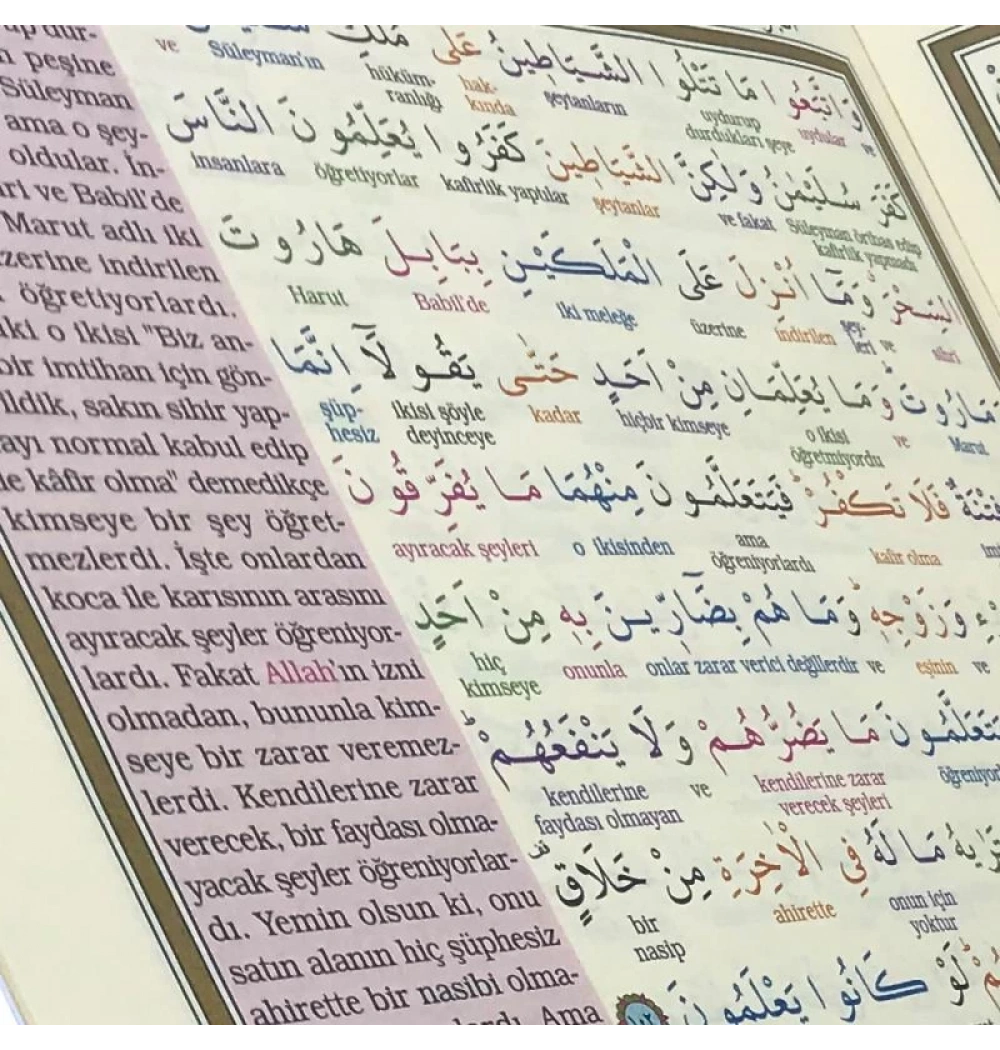 n peşine
Süleyman
ama o şey-
oldular. İn-
ve Babil'de
Marut adlı iki
üzerine indirilen
öğretiyorlardı.
o ikisi "Biz an-
bir imtihan için gön-
sakın sihir yap-
normal kabul edip
kâfir olma" demedikçe
kimseye bir şey öğret-
mezlerdi. İşte onlardan
koca ile karısının arasını
ayıracak şeyler öğreniyor-
lardı. Fakat Allah'ın izni
olmadan, bununla kim-
seye bir zarar veremez-
lerdi. Kendilerine zarar
verecek, bir faydası olma-
yacak şeyler öğreniyorlar-
dı. Yemin olsun ki, onu
satın alanın hiç şüphesiz
ahirette bir nasibi olma-
Ama
وَاتَّبَعُوا مَا تَتْلُوا الشَّيَاطِينُ عَلٰى مُلْكِ
ve uydular uydurup durdukları şeye şeytanların hak-kında hüküm-ranlığı Süleyman'ın ve
كَفَرَ سُلَيْمٰنُ وَلٰكِنَّ الشَّيَاطِينَ كَفَرُوا يُعَلِّمُونَ النَّاسَ
Süleyman örtbas edip kafirlik yapmadı ve fakat şeytanlar kafirlik yaptılar öğretiyorlar insanlara
السِّحْرَ وَمَٓا اُنْزِلَ عَلَى الْمَلَكَيْنِ بِبَابِلَ هَارُوتَ
sihri ve şey-leri indirilen üzerine iki meleğe Babil'de Harut
مَارُوتَ وَمَا يُعَلِّمَانِ مِنْ اَحَدٍ حَتّٰى يَقُولَٓا اِنَّمَا
Marut ve o ikisi öğretmiyordu hiçbir kimseye kadar ikisi şöyle deyinceye şüp-hesiz
فَلَا تَكْفُرْ فَيَتَعَلَّمُونَ مِنْهُمَا مَا يُفَرِّقُونَ
kafir olma ama öğreniyorlardı o ikisinden ayıracak şeyleri
وَزَوْجِهِ وَمَا هُمْ بِضَٓارِّينَ بِهِ مِنْ اَحَدٍ
ve eşinin ve onlar zarar verici değillerdir onunla hiç kimseye
مَا يَضُرُّهُمْ وَلَا يَنْفَعُهُمْ
kendilerine zarar verecek şeyleri ve kendilerine faydası olmayan
مَا لَهُ فِي الْاٰخِرَةِ مِنْ خَلَاقٍ
onun için yoktur ahirette bir nasip
لَوْ كَانُوا يَعْلَمُونَ
١٠٢